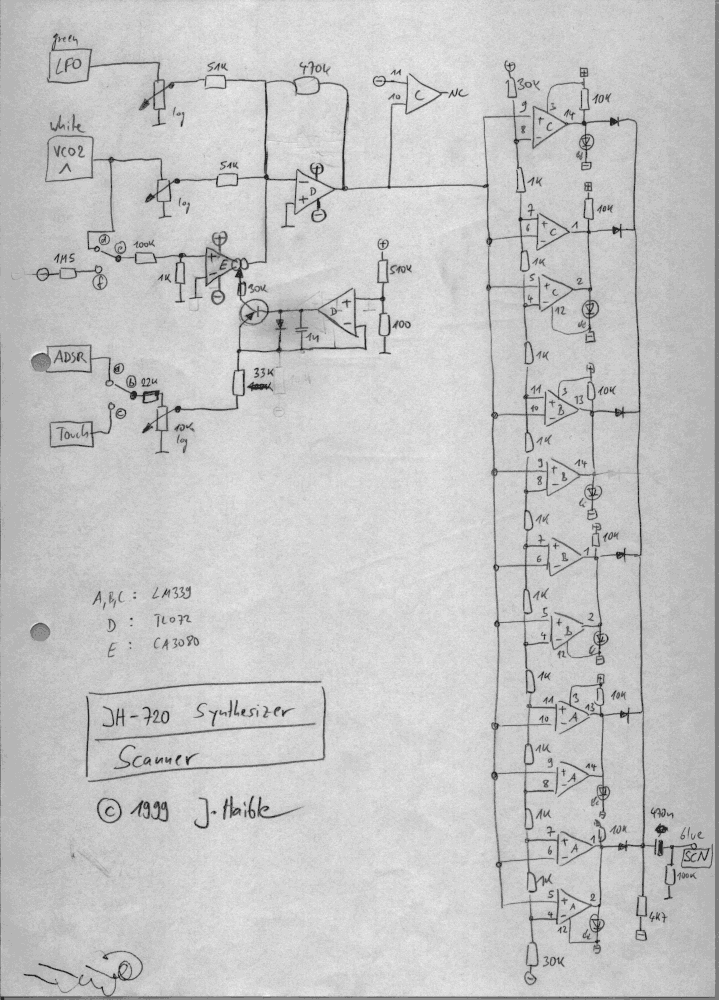 green
LFO
51K
470K
log
white
VCO2
51K
log
D
11
10
C
NC
1M5
100K
1K
E
30K
510K
100
D
ADSR
Touch
22K
10K
log
33K
30K
9
8
C
3
14
10K
1K
7
6
C
1
10K
1K
5
4
C
2
12
1K
11
10
B
3
13
10K
1K
9
8
B
14
1K
7
6
B
1
10K
1K
5
4
B
2
12
1K
11
10
A
3
13
10K
1K
9
8
A
14
1K
7
6
A
1
10K
1K
5
4
A
2
12
30K
470n
blue
SCN
100K
4K7
A,B,C : LM339
D : TL072
E : CA3080
JH-720 Synthesizer
Scanner
© 1999 J. Haible